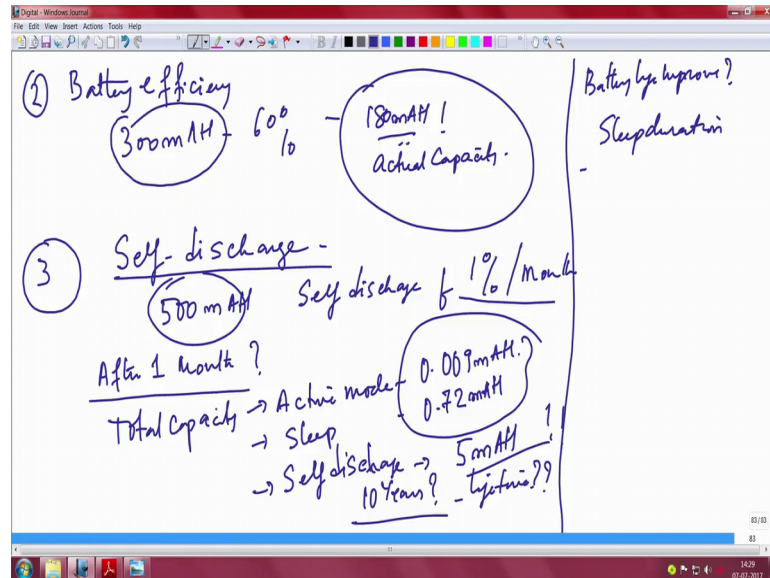 Digital - Windows Journal
File Edit View Insert Actions Tools Help
② Battery efficiency
300mAH - 60% - 180mAH !
actual Capacity.
Battery life Improve?
Sleep duration
-
③ Self-discharge -
500mAH Self discharge of 1%/Month
After 1 Month ?
Total Capacity → Active mode - 0.009mAH.
→ Sleep - 0.72mAH
→ Self discharge → 5mAH !!
10 Years? - Lifetime??
83/83
83
14:29
07-07-2017